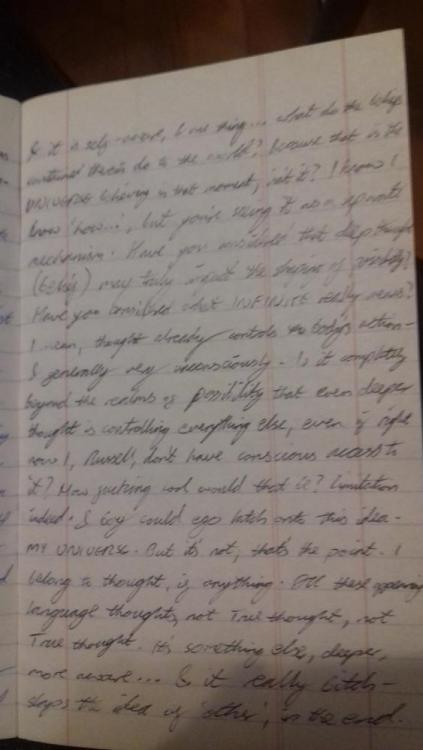 & it is self-aware, & one thing... what do the beliefs
contained therein do to the world? Because that is the
UNIVERSE believing in that moment, isn't it? I know I
know 'how...', but you're seeing it as a separate
mechanism. Have you considered that deep thought
(beliefs) may truly impact the shaping of possibility?
Have you considered what INFINITE really means?
I mean, thought already controls the body's action -
& generally very unconsciously. Is it completely
beyond the realms of possibility that even deeper
thought is controlling everything else, even if right
now I, Russell, don't have conscious access to
it? How fucking cool would that be? Limitation
indeed. & boy could ego latch onto this idea -
MY UNIVERSE. But it's not, that's the point. I
belong to thought, if anything. All these appearing
language thoughts, not True thought, not
True thought. It's something else, deeper,
more aware... & it really bitch-
slaps the idea of 'other', in the end.